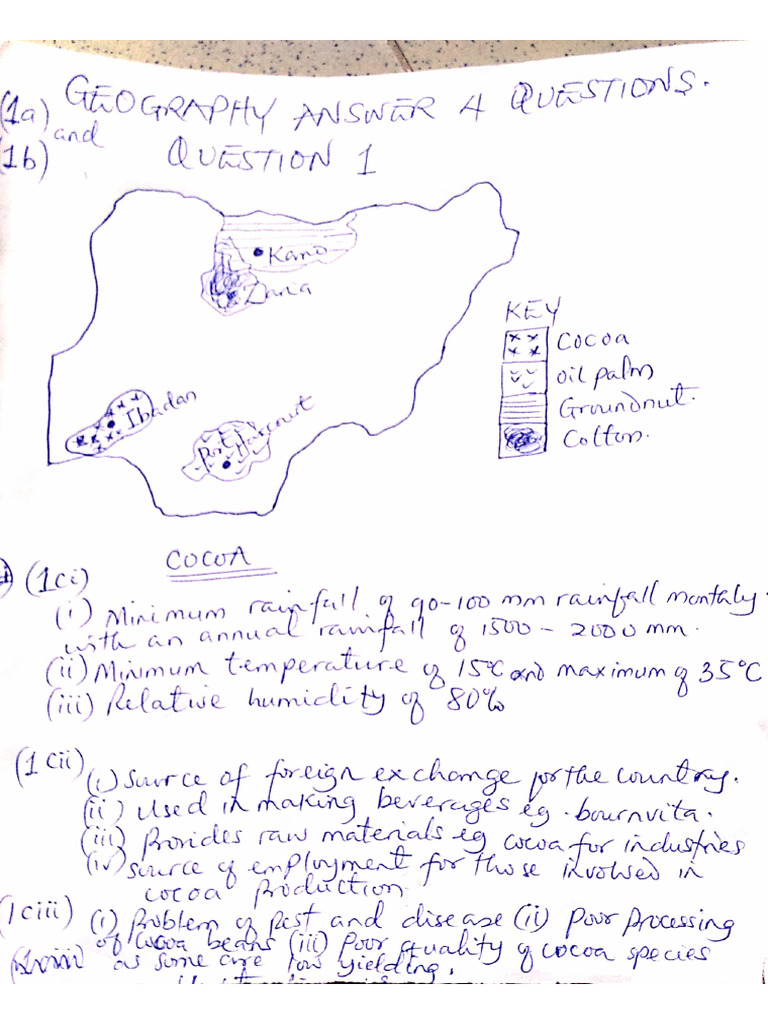 (1a) GEOGRAPHY ANSWER 4 QUESTIONS.
and
(1b) QUESTION 1
Kano
Zaria
KEY
Cocoa
oil palm
Groundnut.
Cotton.
Ibadan
Port Harcourt
COCOA
(1ci)
(i) Minimum rainfall of 90-100 mm rainfall montaly.
with an annual rainfall of 1500 - 2000 mm.
(ii) Minimum temperature of 15°C and maximum of 35°C
(iii) Relative humidity of 80%
(1cii) (i) Source of foreign exchange for the country.
(ii) Used in making beverages eg. bournvita.
(iii) Provides raw materials eg cocoa for industries
(iv) Source of employment for those involved in
cocoa production.
(1ciii) (i) Problem of pest and disease (ii) Poor processing
of cocoa beans (iii) Poor quality of cocoa species
as some are low yielding.